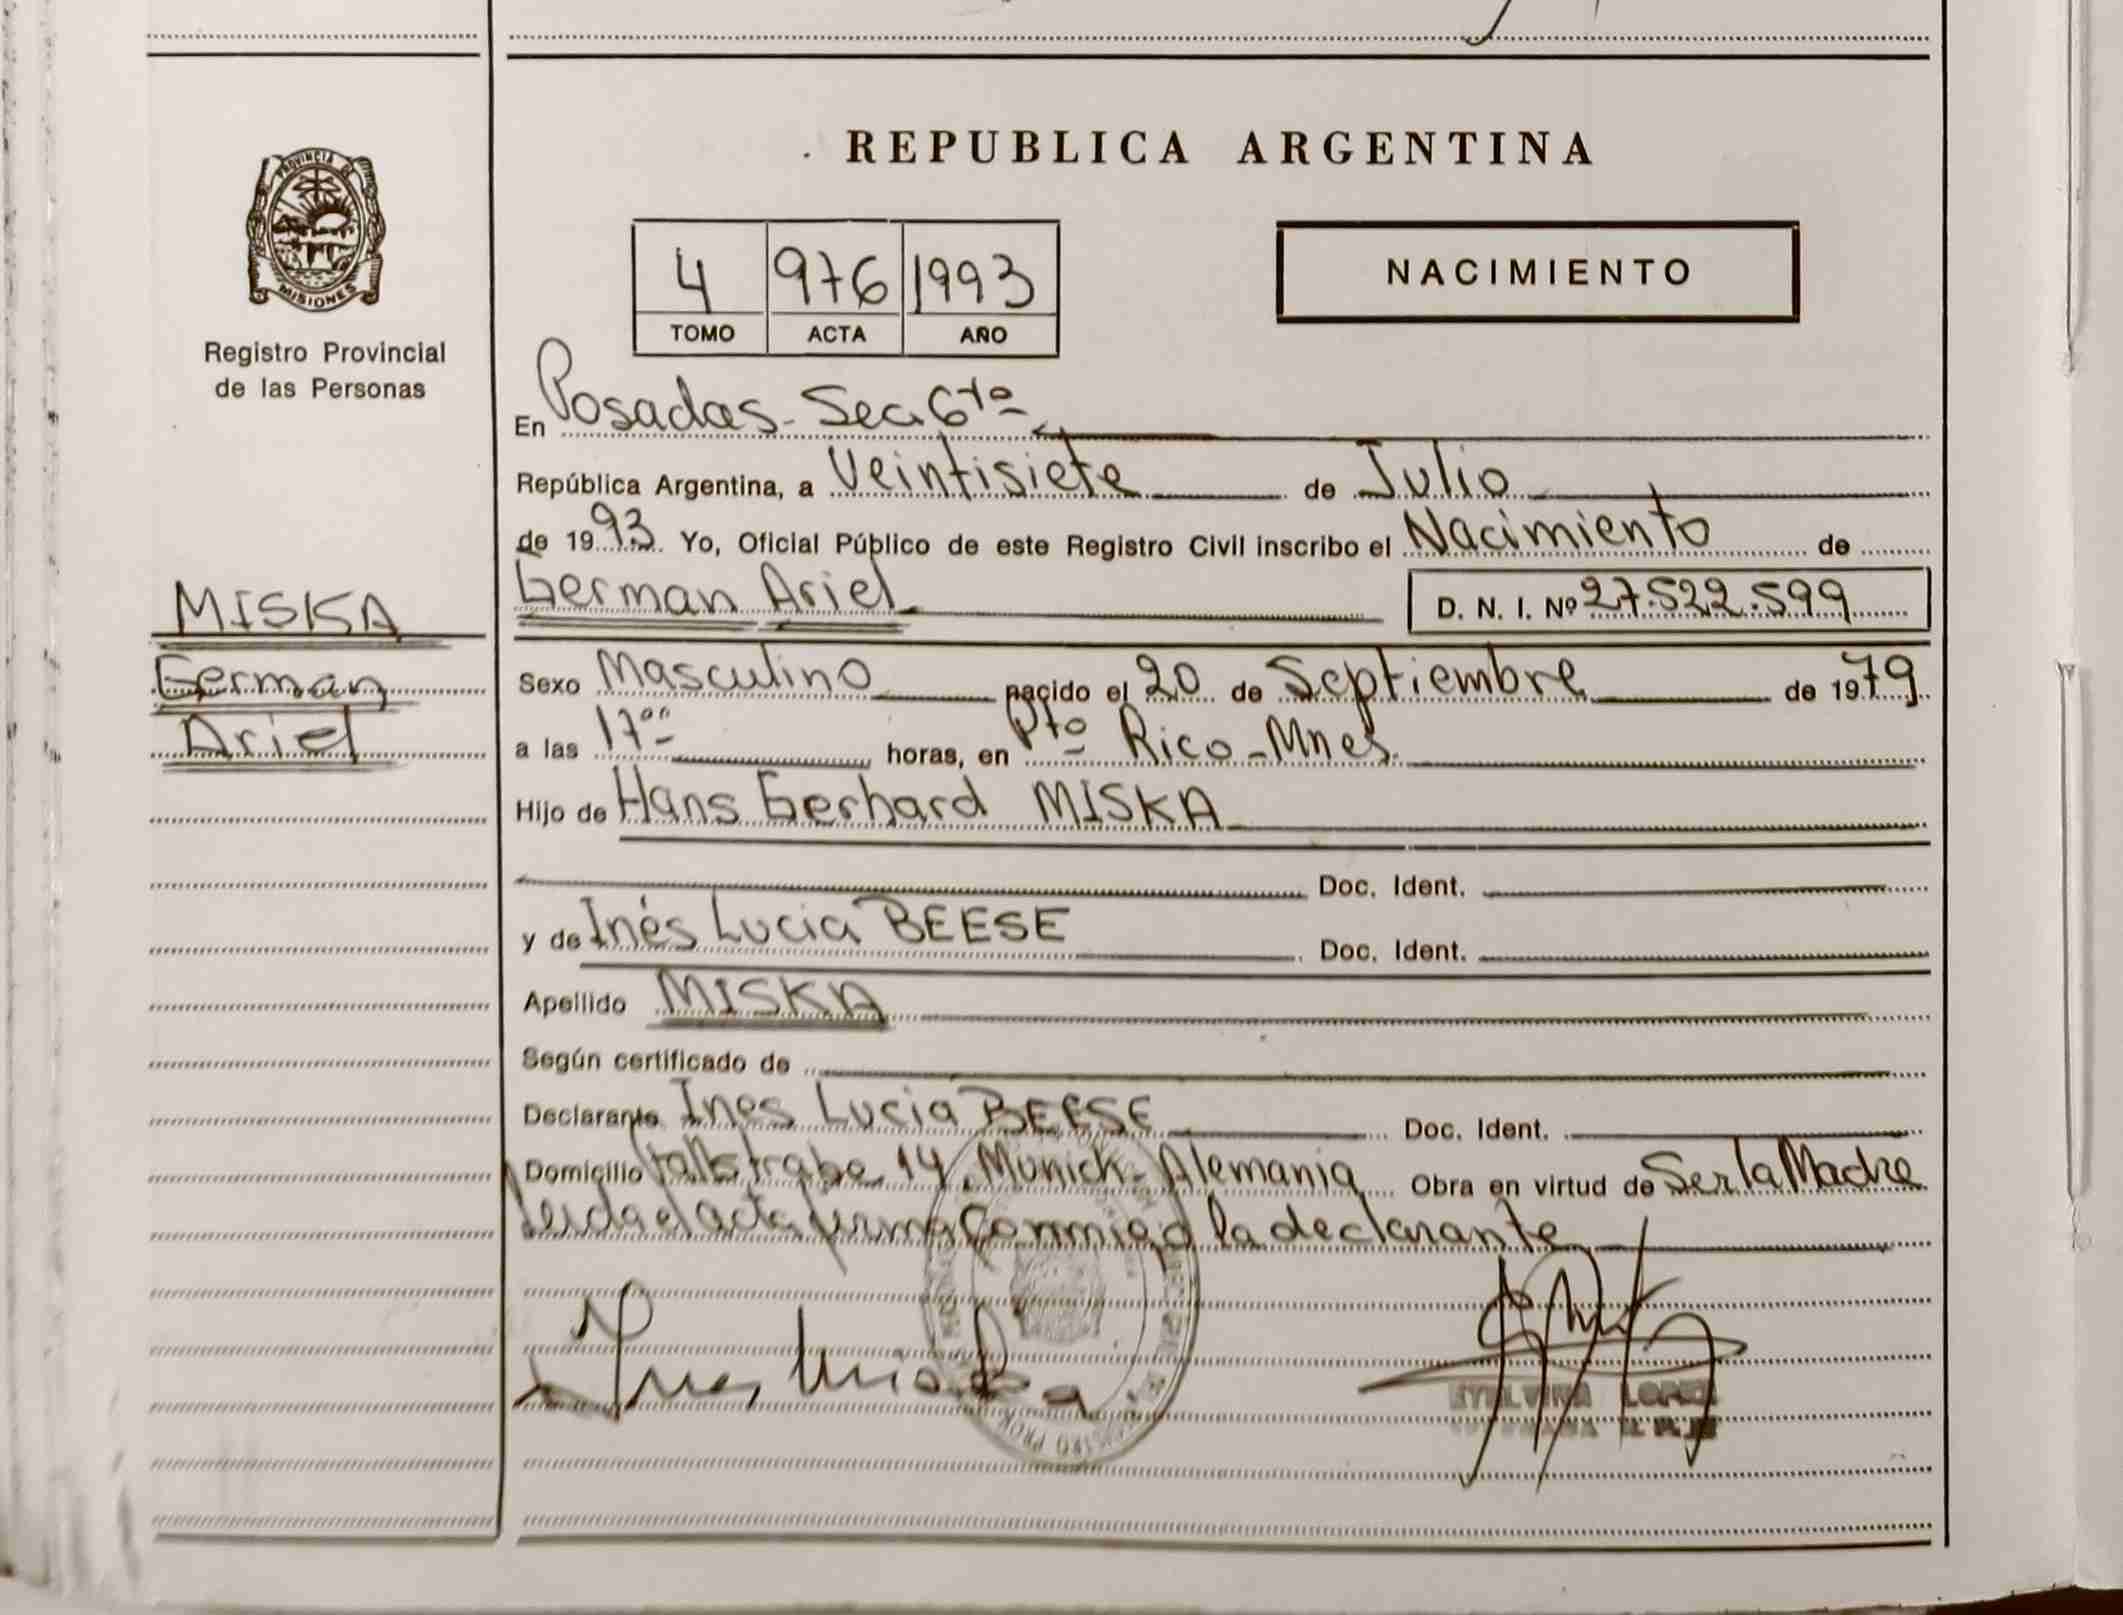 REPUBLICA ARGENTINA
PROVINCIA DE
MISIONES
Registro Provincial
de las Personas
4 976 1993
TOMO ACTA AÑO
NACIMIENTO
En Posadas - Sec. 6ta
República Argentina, a Veintisiete de Julio
de 1993. Yo, Oficial Público de este Registro Civil inscribo el Nacimiento de
German Ariel D. N. I. Nº 27.522.599
MISKA
German
Ariel
Sexo Masculino nacido el 20 de Septiembre de 1979
a las 17 00 horas, en Pto Rico - Mnes.
Hijo de Hans Gerhard MISKA
Doc. Ident.
y de Inés Lucia BEESE Doc. Ident.
Apellido MISKA
Según certificado de
Declarante Ines Lucia BEESE Doc. Ident.
Domicilio 14, Munich - Alemania Obra en virtud de Ser la Madre
Leida el acta firma Conmigo la declarante
LOPEZ